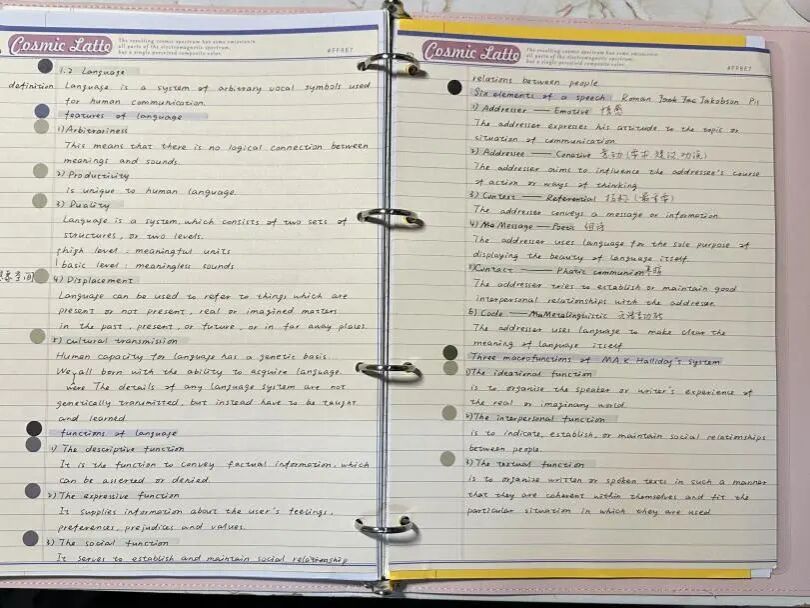 Cosmic Latte
The resulting cosmic spectrum has some emissions
all parts of the electromagnetic spectrum,
but a single perceived composite color.
#FFF8E7
1.2 Language
definition Language is a system of arbitrary vocal symbols used
for human communication.
features of language
1) Arbitrariness
This means that there is no logical connection between
meanings and sounds.
2) Productivity
is unique to human language.
3) Duality
Language is a system, which consists of two sets of
structures, or two levels.
high level: meaningful units
basic level: meaningless sounds
4) Displacement
Language can be used to refer to things which are
present or not present, real or imagined matters
in the past, present, or future, or in far away places.
5) cultural transmission
Human capacity for language has a genetic basis.
We all born with the ability to acquire language.
were The details of any language system are not
generically transmitted, but instead have to be taught
and learned
functions of language
1) The descriptive function
It is the function to convey factual information, which
can be asserted or denied.
2) The expressive function
It supplies information about the user's feelings,
preferences, prejudices and values.
3) The social function
It serves to establish and maintain social relationship
Cosmic Latte
The resulting cosmic spectrum has some emissions
all parts of the electromagnetic spectrum,
but a single perceived composite color.
#FFF8E7
relations between people
Six elements of a speech Roman Jakobson
1) Addresser —— Emotive 情感
The addresser expresses his attitude to the topic or
situation of communication
2) Addressee —— Conative 意动
The addresser aims to influence the addressee's course
of action or ways of thinking.
3) Context —— Referential
The addresser conveys a message or information.
4) Message —— Poetic
The addresser uses language for the sole purpose of
displaying the beauty of language itself.
5) Contact —— Phatic communion
The addresser tries to establish or maintain good
interpersonal relationships with the addressee.
6) Code —— Metalinguistic 元语言功能
The addresser uses language to make clear the
meaning of language itself
Three macrofunctions of M.A.K Halliday's system
1) The ideational function
is to organise the speaker or writer's experience of
the real or imaginary world.
2) The interpersonal function
is to indicate, establish, or maintain social relationships
between people.
3) The textual function
is to organise written or spoken texts in such a manner
that they are coherent within themselves and fit the
particular situation in which they are used